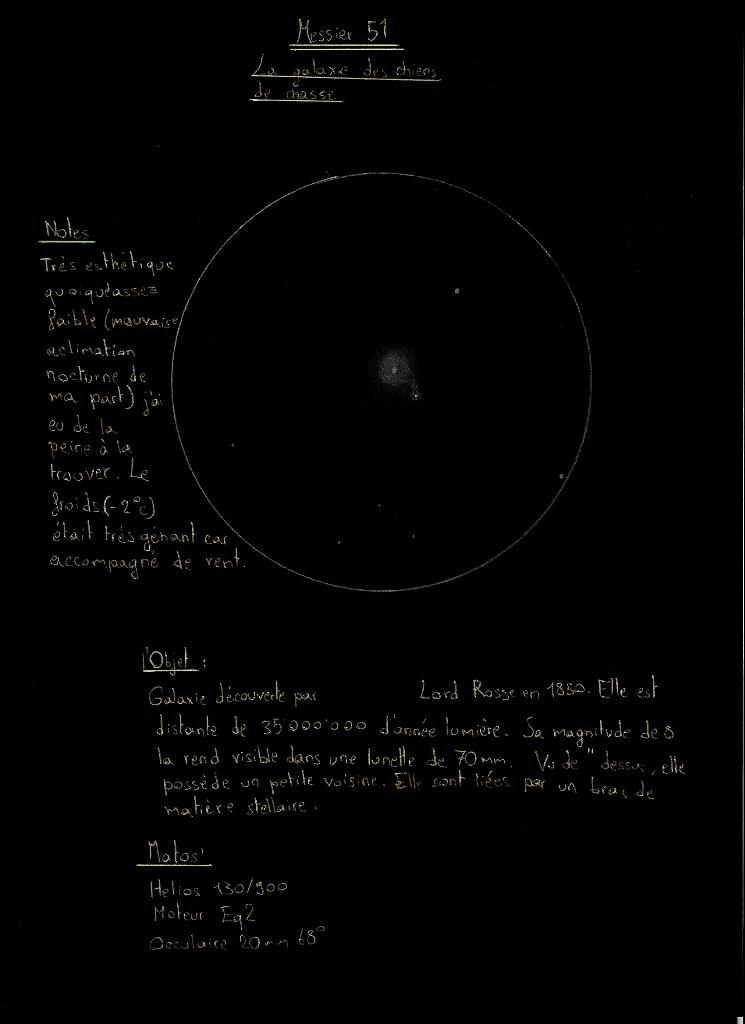 Messier 51
La galaxie des chiens
de chasse
Notes
Très esthétique
quoiquéassez
faible (mauvaise
aclimation
nocturne de
ma part) j'ai
eu de la
peine à la
trouver. Le
froids (-2°c)
était très gênant car
accompagné de vent.
l'Objet :
Galaxie découverte par Lord Rosse en 1850. Elle est
distante de 35'000'000 d'année lumière. Sa magnitude de 8
la rend visible dans une lunette de 70mm. Vu de "dessus, elle
possède un petite voisine. Elle sont liées par un bras de
matière stellaire.
Matos'
Helios 130/900
Moteur Eq2
Occulaire 20mm 68°